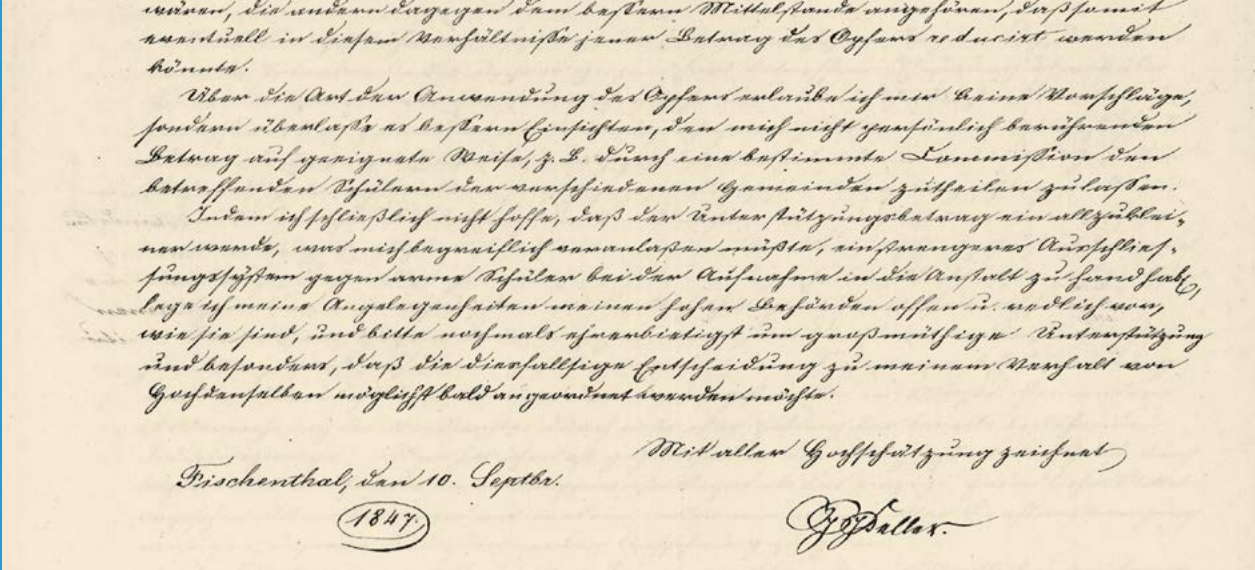 wären, die andern dagegen dem bessern Mittelstande angehören, daß somit
eventuell in diesem Verhältnisse jener Betrag des Opfers reducirt werden
könnte.
Über die Art der Anwendung des Opfers erlaube ich mir keine Vorschläge,
sondern überlasse es bessern Einsichten, den mich nicht persönlich berührenden
Betrag auf geeignete Weise, z. B. durch eine bestimmte Commission den
betreffenden Schülern der verschiedenen Gemeinden zutheilen zu lassen.
Indem ich schließlich nicht hoffe, daß der Unterstützungsbetrag ein allzuklei-
ner werde, was mich begreiflich veranlaßen müßte, ein strengeres Ausschlies-
sungssystem gegen arme Schüler bei der Aufnahme in die Anstalt zu handhab,
lege ich meine Angelegenheiten meinen hohen Behörden offen u. redlich vor,
wie sie sind, und bitte nochmals ehrerbietigst um großmüthige Unterstützung
und besonders, daß die diesfallsige Entscheidung zu meinem Verhalt von
Hochdenselben möglichst bald angeordnet werden möchte.
Mit aller Hochschätzung zeichnet
Fischenthal, den 10. Septbr.
1847.
Keller.